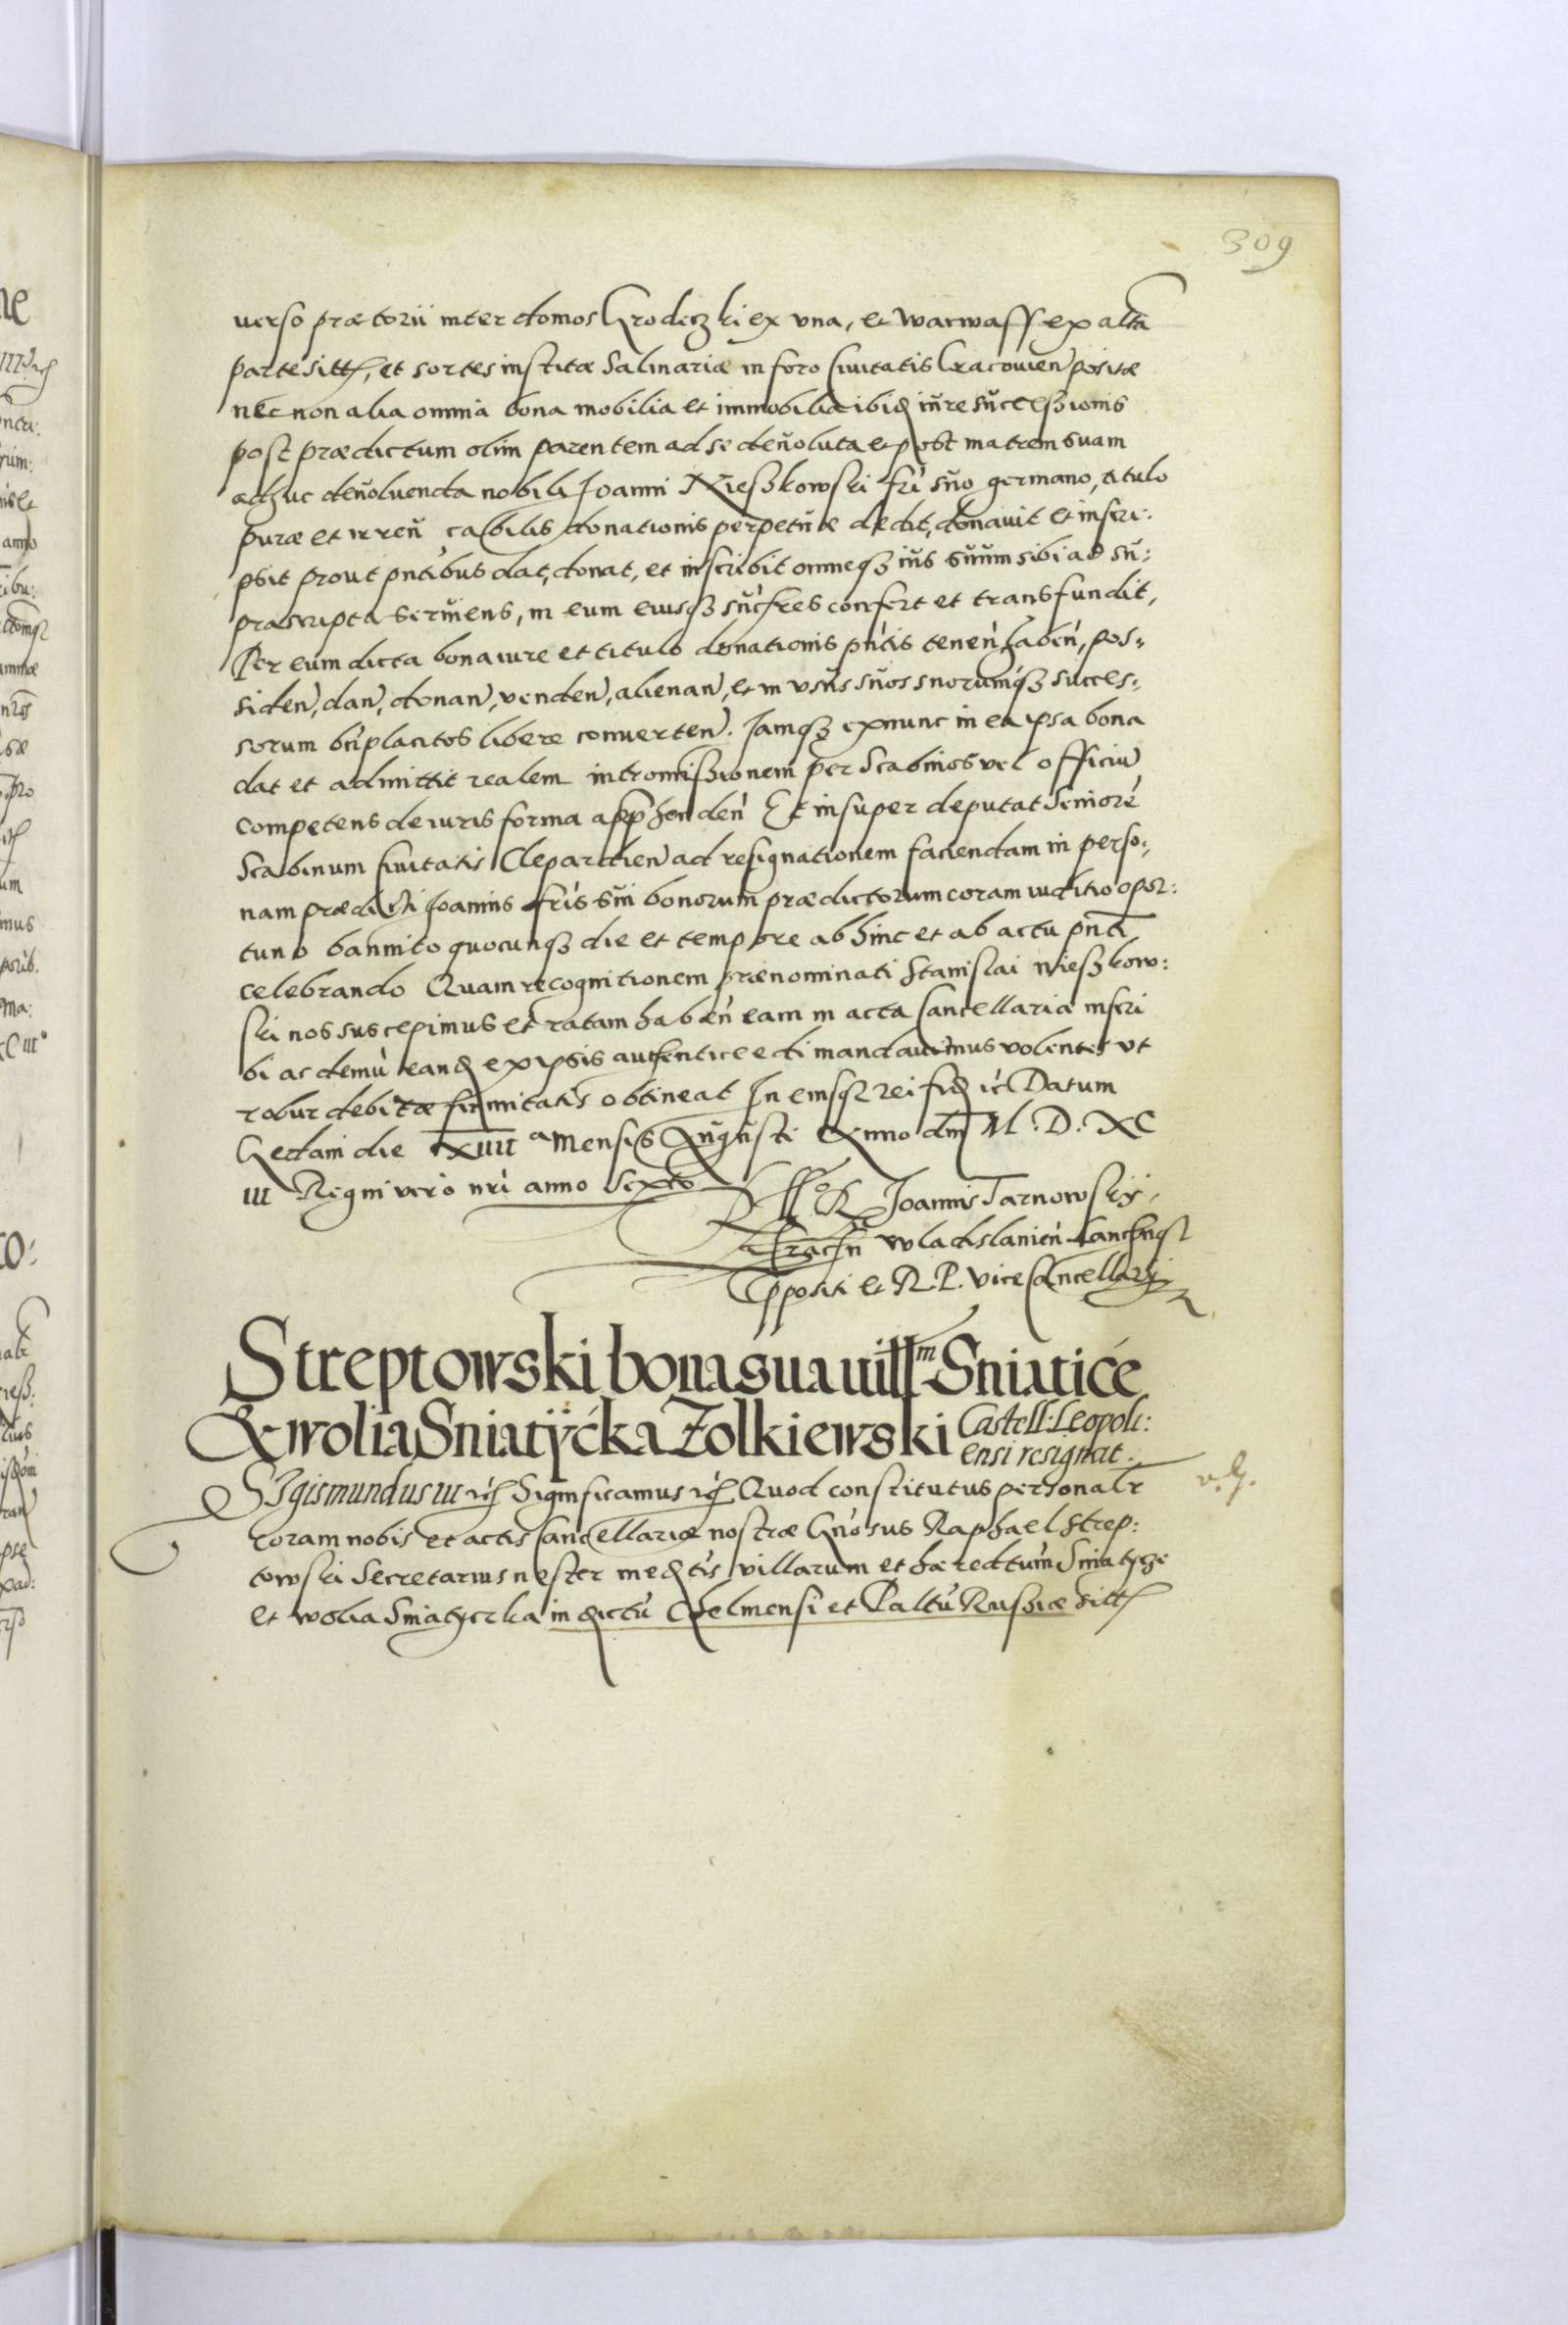 309
verso prætorii inter domos Grodeczki ex vna, et warwass ex alta
parte sitt, et sortes institæ Salinariæ in foro Civitatis Cracovien positæ
nec non alia omnia bona mobilia et immobilia ibid iure successionis
post prædictum olim parentem ad se devoluta et post matrem suam
adhuc devoluenda nobili Joanni Nieszkowski fri suo germano, titulo
puræ et irreu cabilis donationis perpetuæ dedit, donavit et inscri:
psit prout pntibus dat, donat, et inscribit omneqz ius suum sibi ad su:
prascripta seruiens, in eum eiusqz sucfres confert et transfundit,
Per eum dicta bona iure et titulo donationis pntis tenen haben, pos:
siden, dan, donan, venden, alienan, et in vsus suos suorumqz succes:
sorum bnplacitos libere conuerten. Jamqz ex nunc in ea ipsa bona
dat et admittit realem intromissionem per Scabinos vel officiu
competens de iuris forma apphenden Et insuper deputat Seniore
Scabinum Civitatis Clepardien ad resignationem faciendam in perso:
nam prædicti Joannis fris sui bonorum prædictorum coram iuditio opor:
tuno bannito quocunqz die et tempore ab hinc et ab actu pnti
celebrando Quam recognitionem prænominati Stanislai Nieszkow:
ski nos suscepimus et ratam haben eam in acta Cancellaria inscri
bi ac demu eand ex ipsis authentice edi mandauimus volentes vt
robur debitæ firmitatis obtineat In cuiusqz rei fid ic Datum
Gedani die XIIII a Mensis Augusti Anno dm M. D. XC
III Regni vero nri anno Sexto
Joannis Tarnowskij,
wladislauien Lancicnqz
ppositi et R. P. vice Cancellarij
Streptowski bona sua vill m Sniatice
& wolia Sniatÿcka Zolkiewski Castell: Leopoli:
ensi resignat.
Sigismundus III ic Significamus ic Quod constitutus personalr
coram nobis et actis Cancellariæ nostræ Gnosus Raphael Strep:
towski Secretarius noster medtis villarum et hæredtum Sniatycze
et wolia Sniatyczka in dictu Chelmensi et Paltu Russiæ sitt